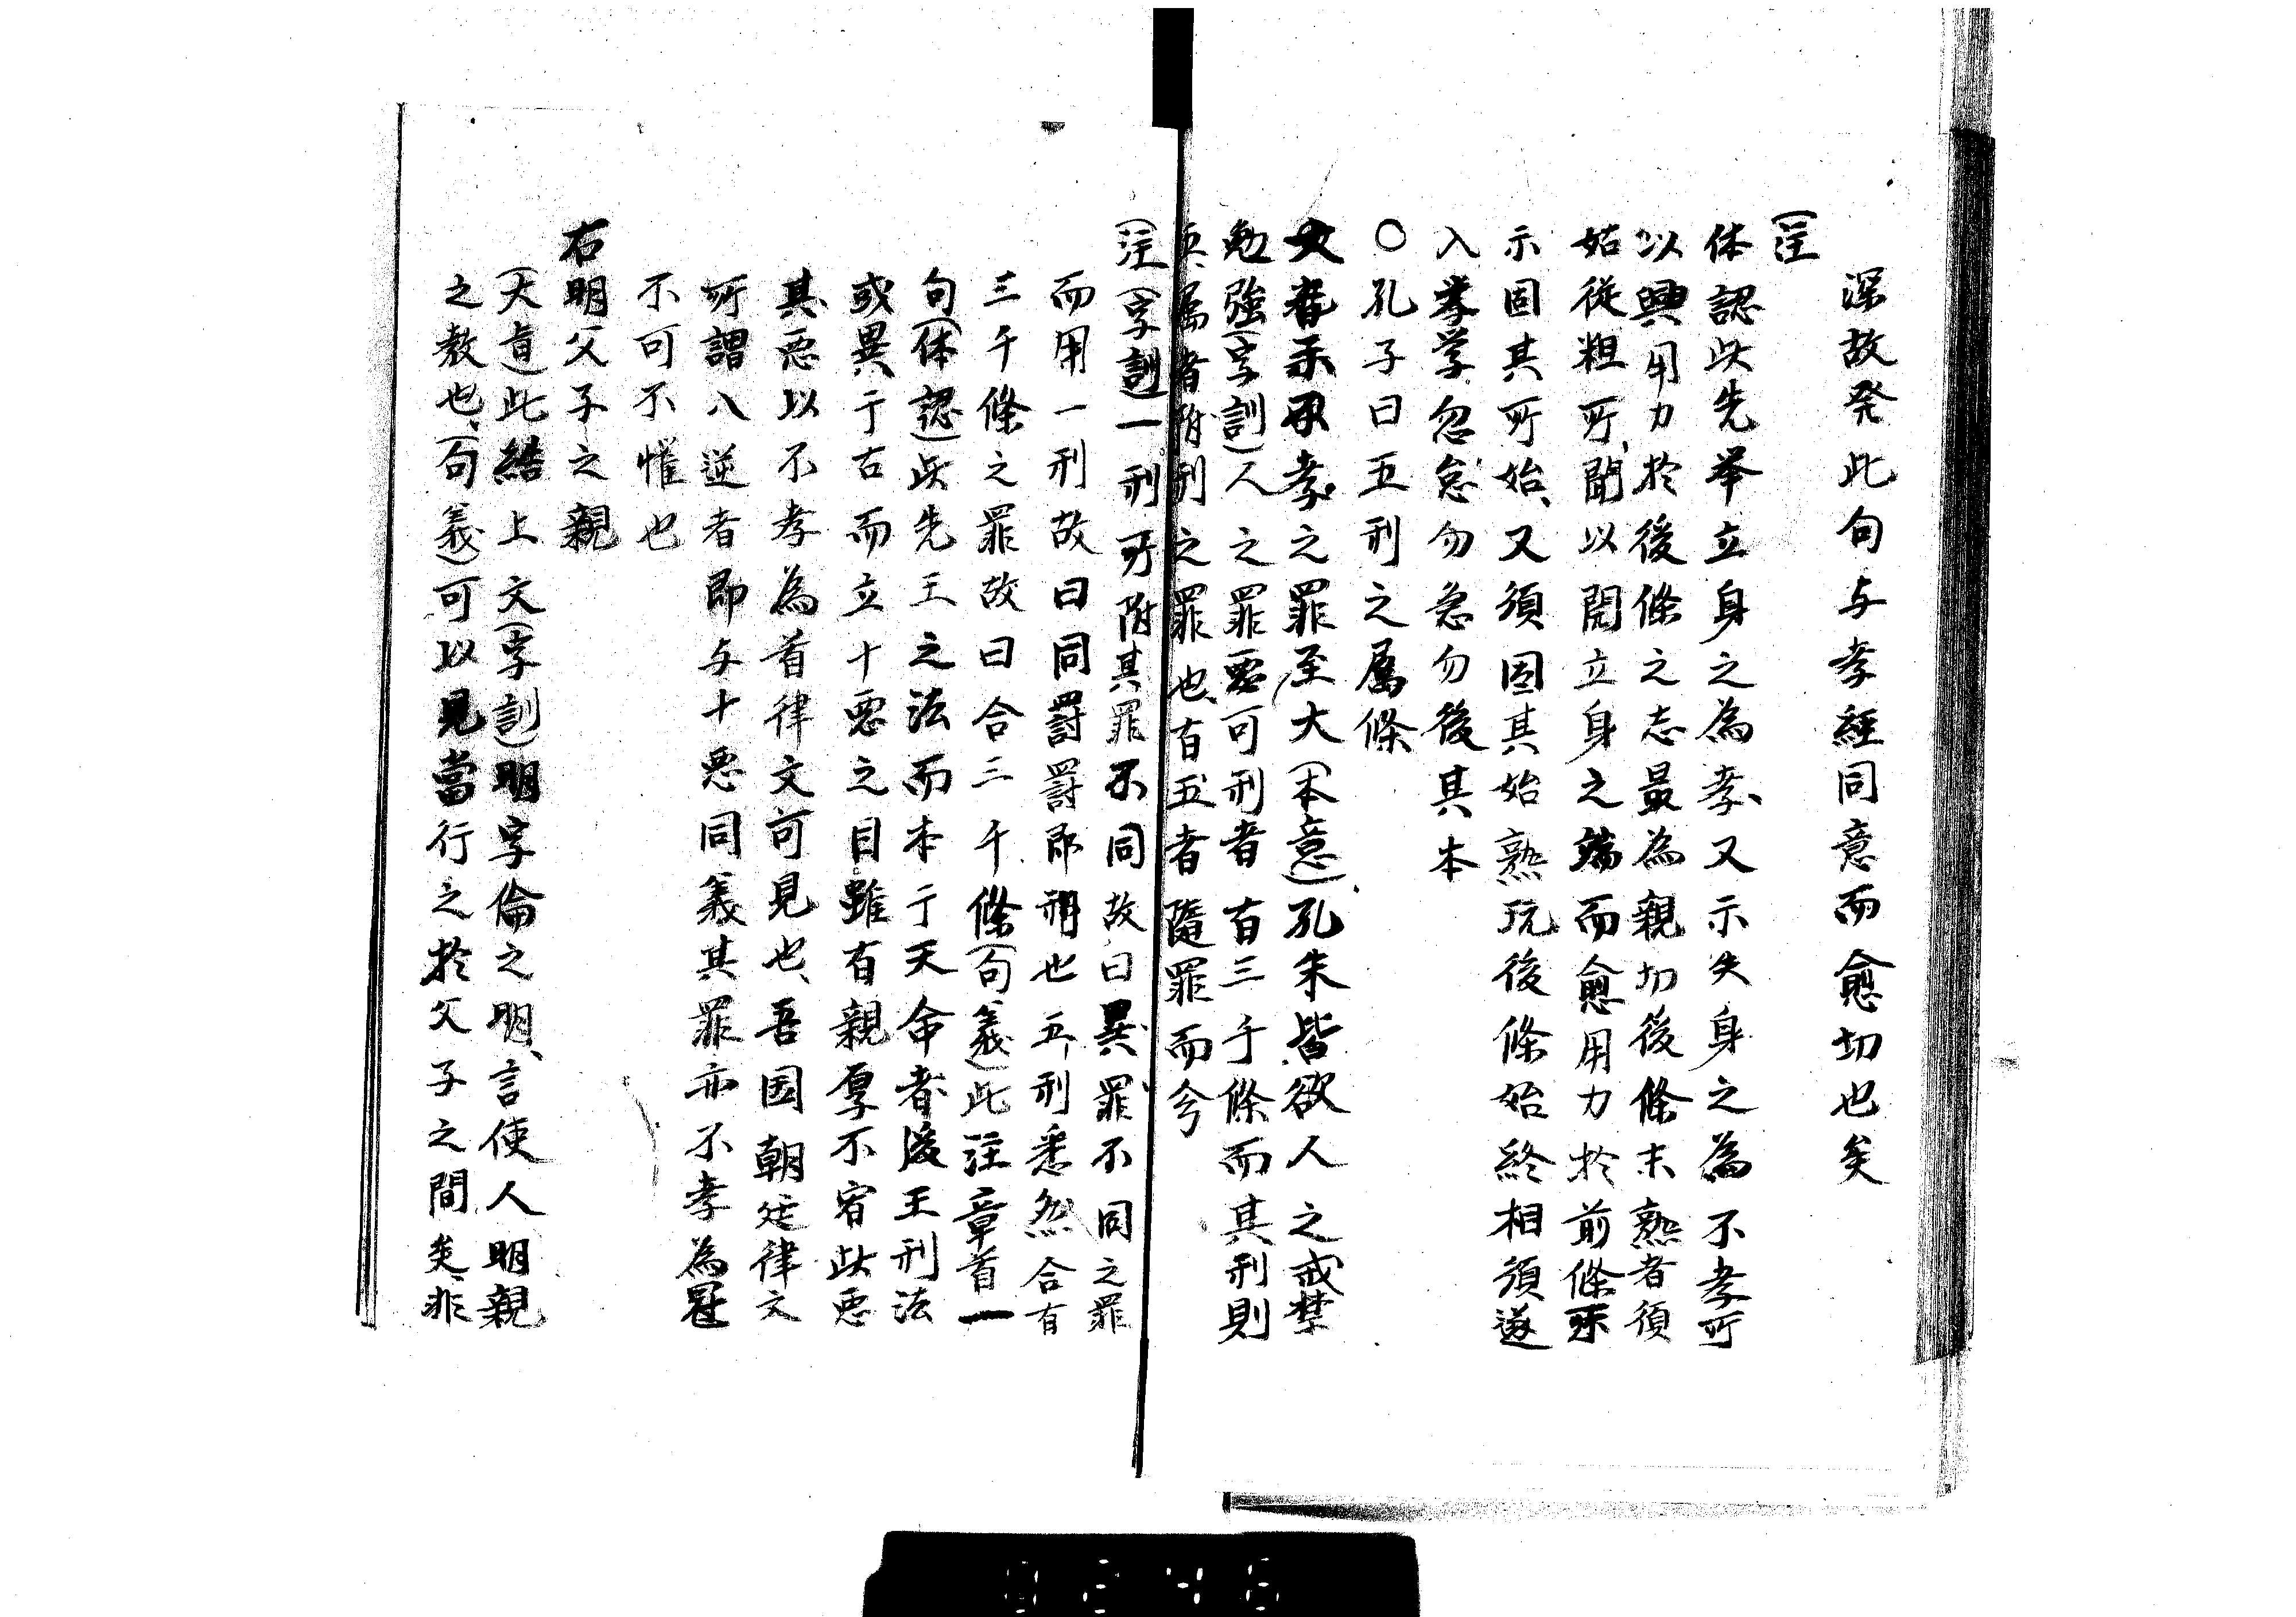 深故発此句与孝経同意而愈切也矣
(注
体認此先挙立身之為孝又示失身之為不孝所
以興用力於後條之志最為親切後條未熟者須
姑従粗所聞以開立身之端而愈用力於前條所
示固其所始、又須固其始熟玩後條始終相須遂
入孝学忽怠勿急勿後其本
○孔子曰五刑之属條
大者示不孝之罪至大(本意)孔朱皆欲人之戒禁
勉強(字訓)人之罪悪可刑者有三千條而其刑則
五、属者附刑之罪也、有五者隨罪而今
(注(字訓)一刑所附其罪不同故曰異罪不同之罪
而用一刑故曰同罰罰即刑也五刑悉然合有
三千條之罪故曰合三千條(句義)此注章首一
句(体認)此先王之法而本于天命者後王刑法
或異于古而立十悪之目雖有親厚不宥此悪
其悪以不孝為首律文可見也、吾国朝廷律文
所謂八逆者即与十悪同義其罪亦不孝為冠
不可不懼也
右明父子之親
(大旨)此結上文(字訓)明字倫之明、言使人明親
之教也、(句義)可以見當行之於父子之間矣、非